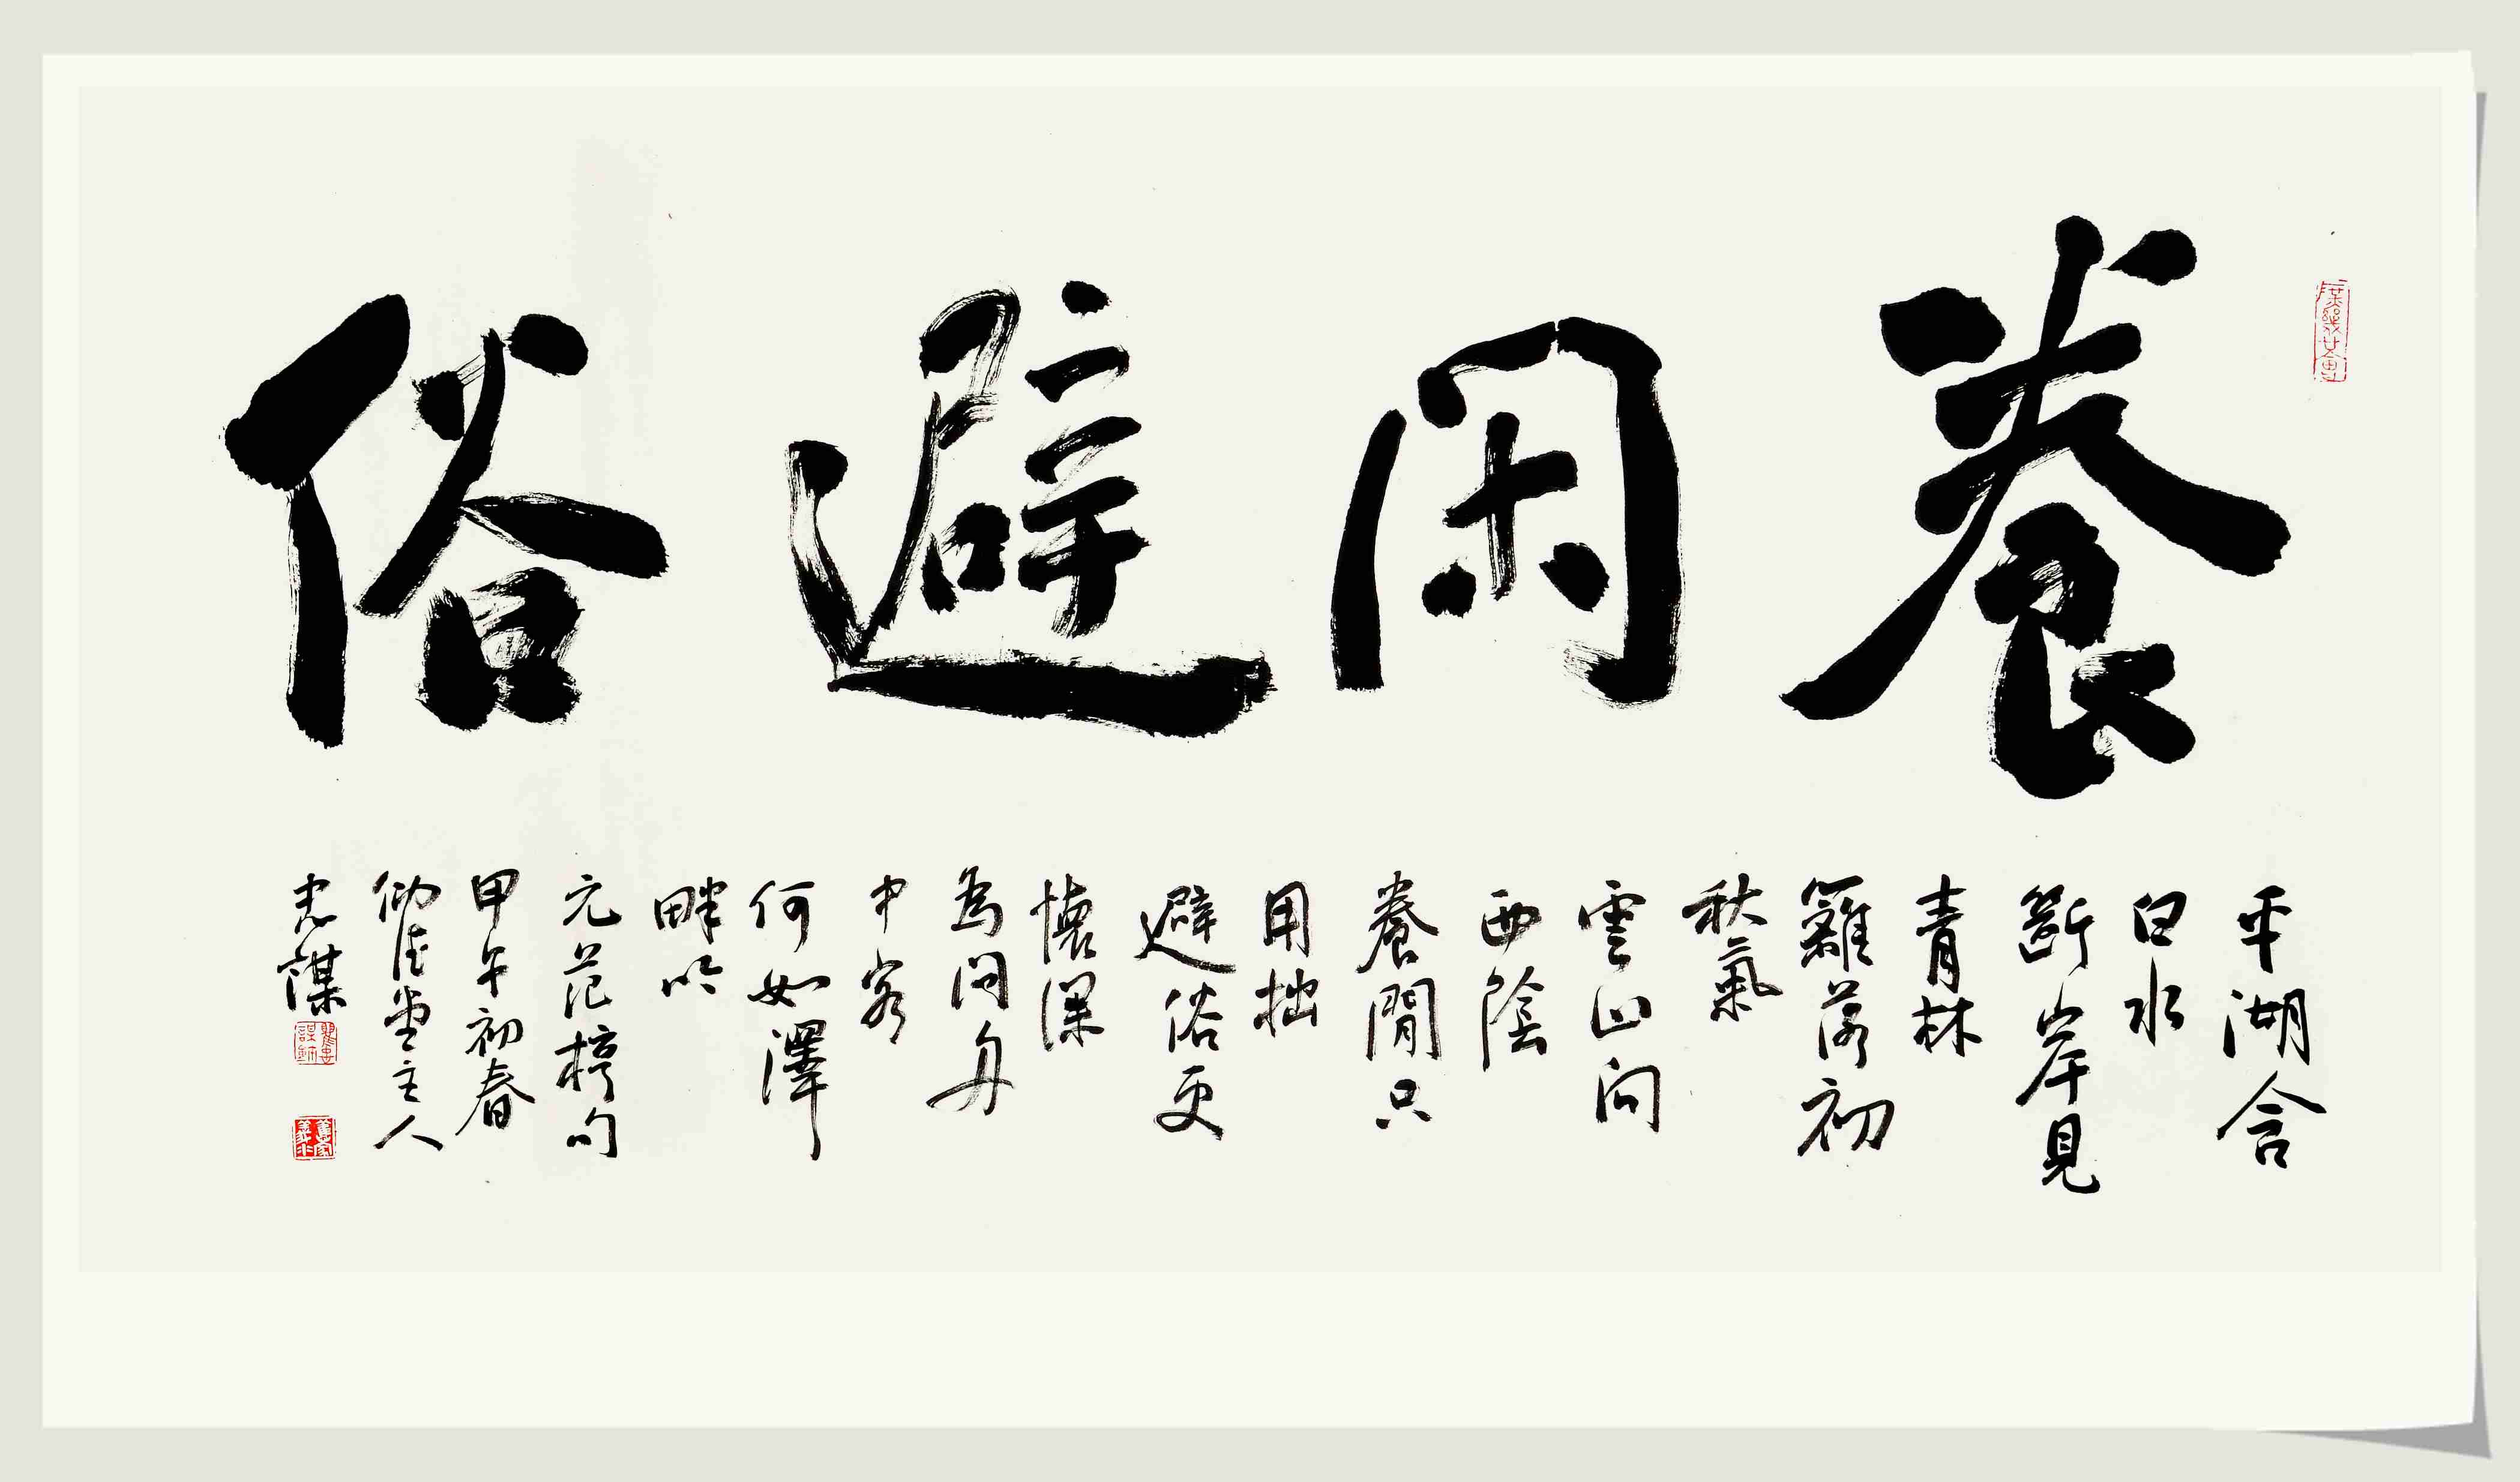 養闲避俗
平湖含
白水
斷岸見
青林
籬落初
秋氣
雲山向
西陰
養閒只
用拙
避俗更
懷深
為問舟
中客
何如澤
畔吟
元范梈句
甲午初春
堂主人
忠謀